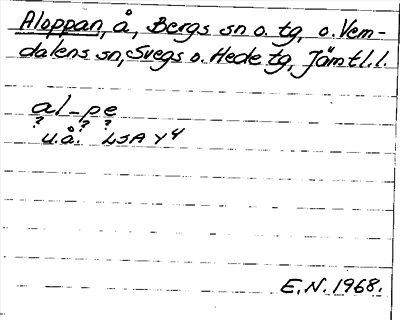 Aloppan, å, Bergs sn o. tg, o. Vem-
dalens sn, Svegs o. Hede tg, Jämtl.l.
al-pe
? ? ?
u.å. LSA Y4
E.N. 1968.